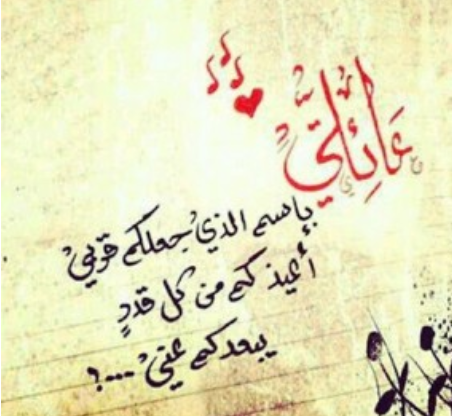 عَائِلَتِي
بإسم الذي جعلكم قوتي
أعيذكم من كل قدرٍ
يبعدكم عني ...؟